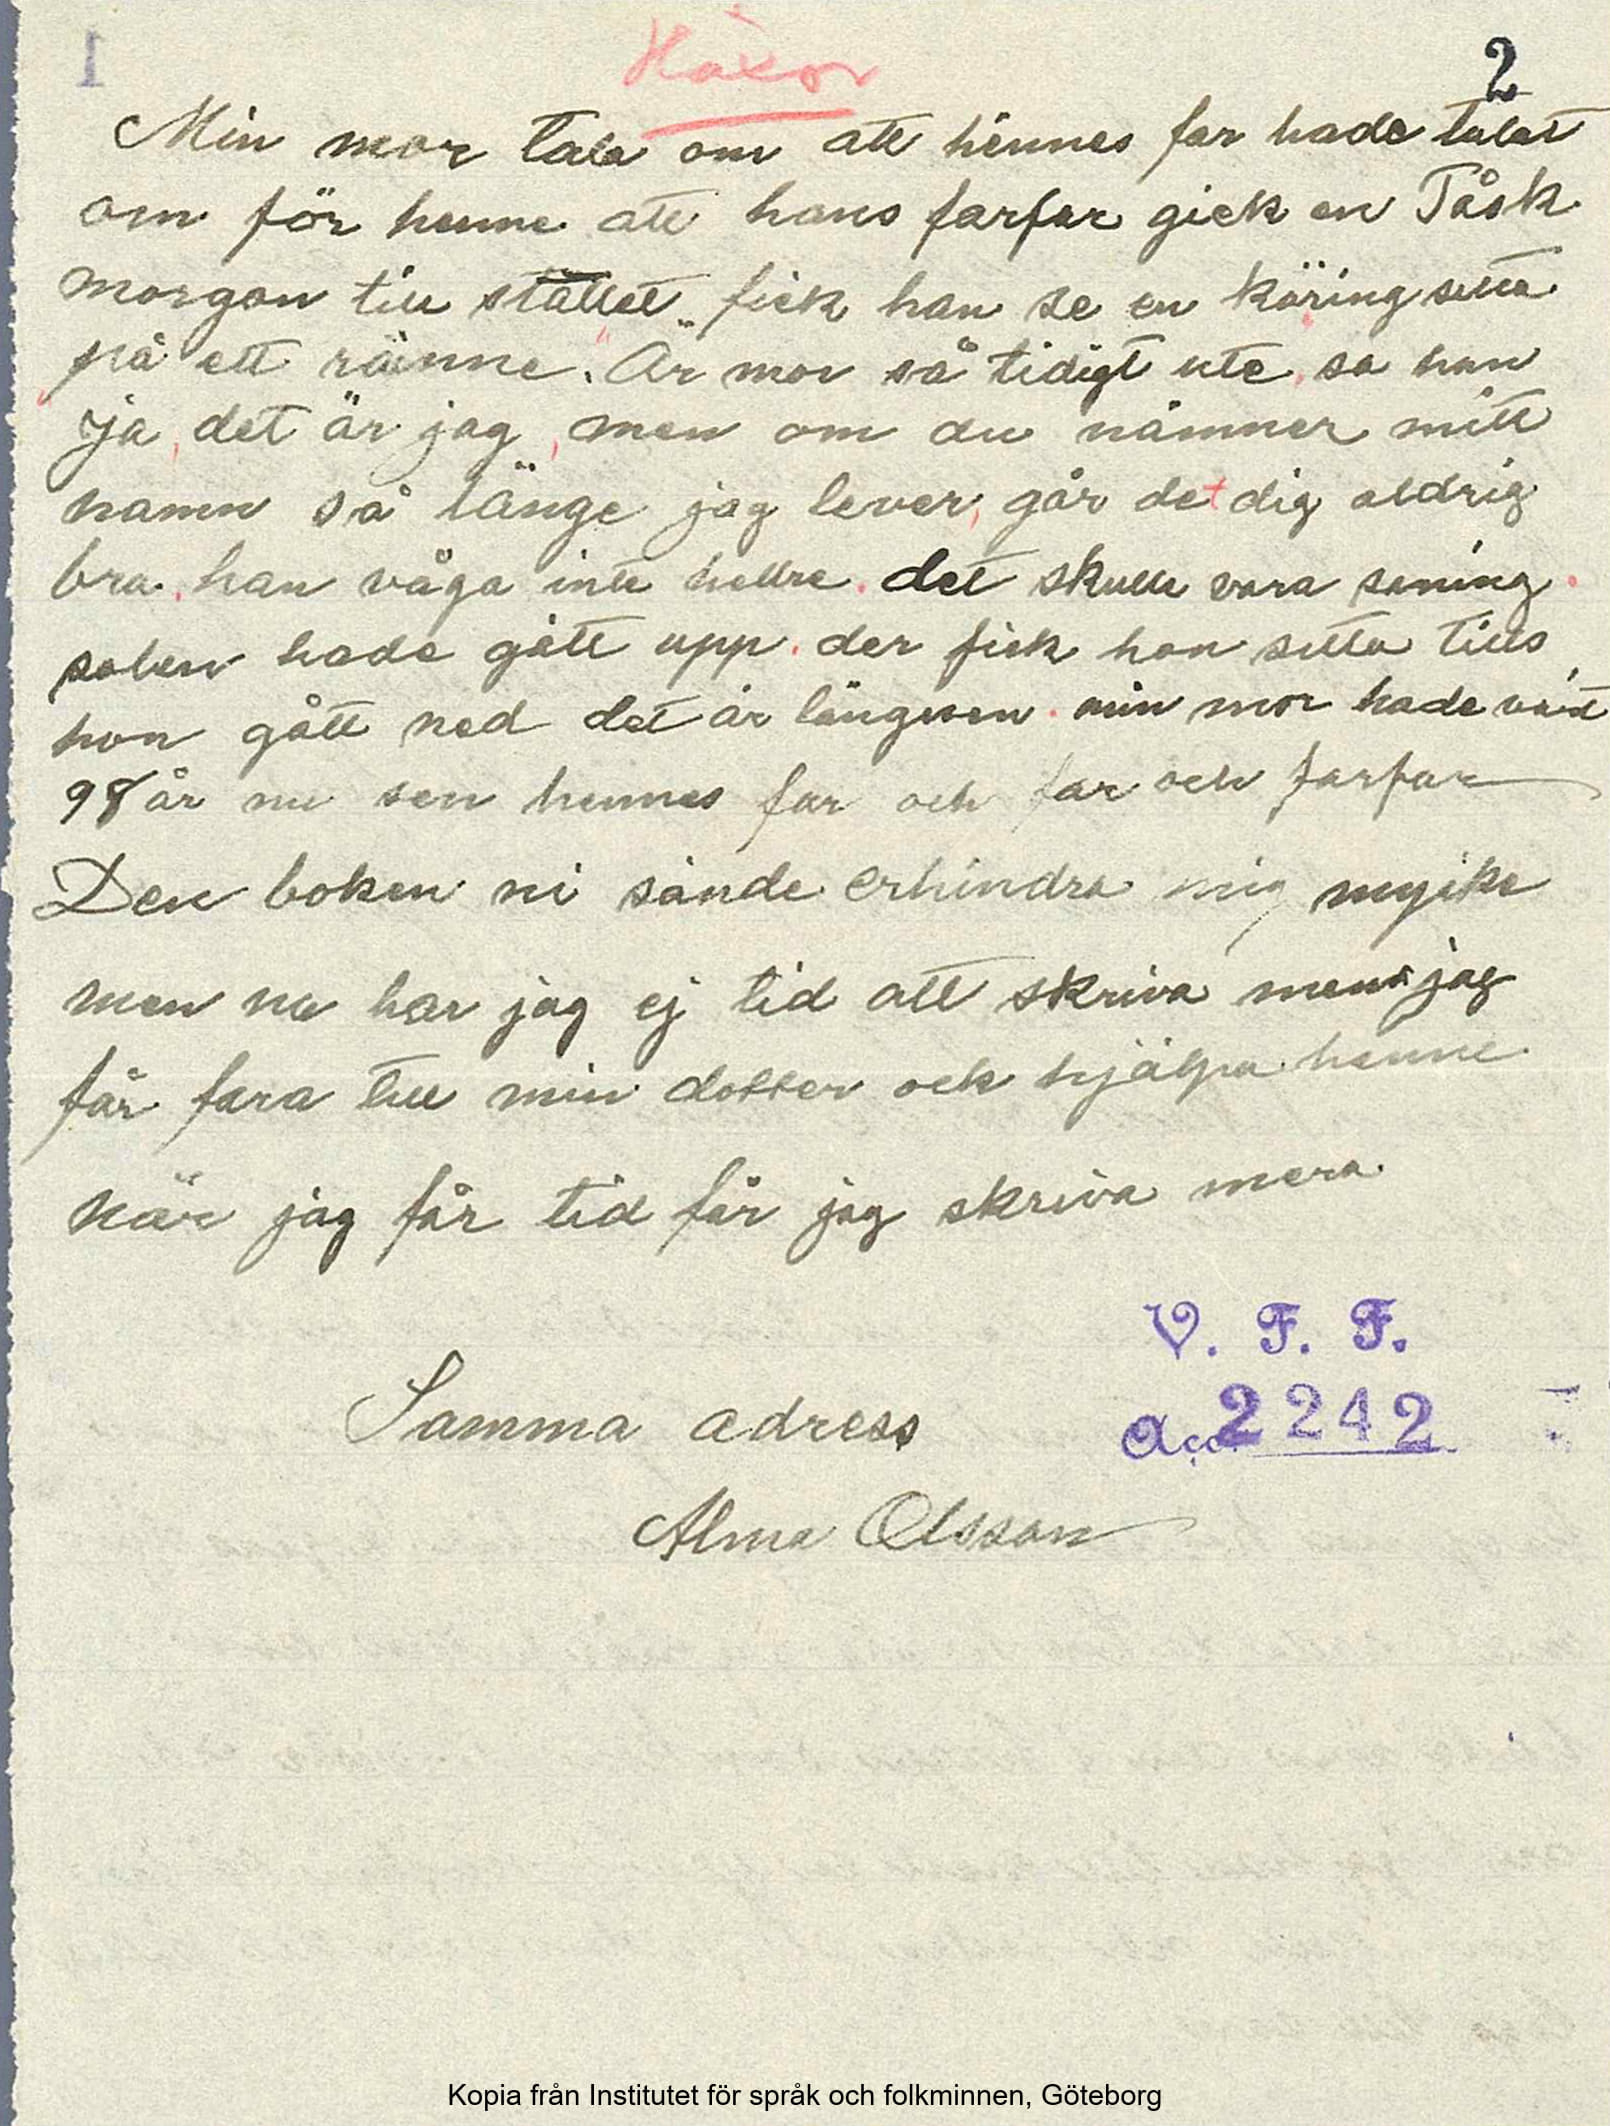 Häxor
2
Min mor tala om att hennes far hade talat
om för henne att hans farfar gick en Påsk
morgon till stallet fick han se en käring sitta
på ett ränne. "Är mor så tidigt ute, sa han
ja, det är jag, men om du nämner mitt
namn så länge jag lever, går det dig aldrig
bra. han våga inte hellre. det skulle vara saning.
solen hade gått upp. der fick hon sitta tills
hon gått ned det är längesen. min mor hade vart
98 år nu sen hennes far och far och farfar
Den boken ni sände erhindra mig myike
men nu har jag ej tid att skriva mera jag
får fara till min dotter ock hjälpa henne
när jag får tid får jag skriva mera
V. F. F.
Samma adress
Acc. 2242
Alma Olsson
Kopia från Institutet för språk och folkminnen, Göteborg